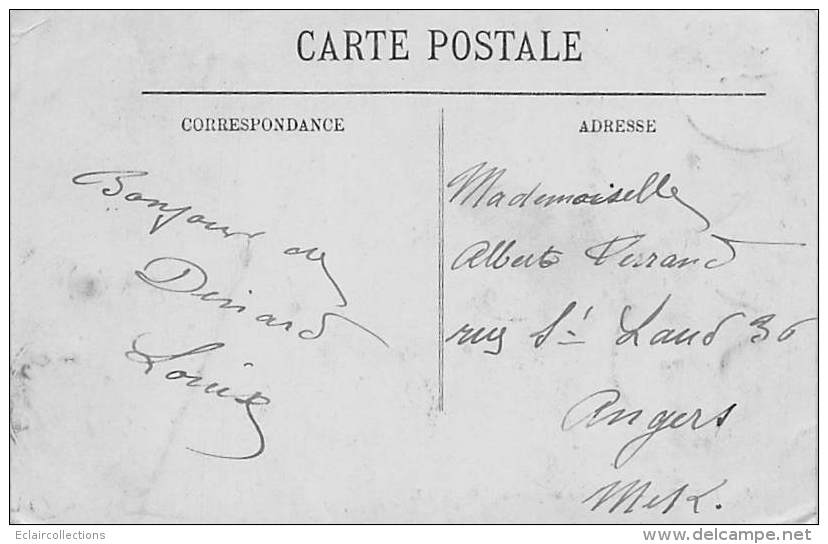 CARTE POSTALE
CORRESPONDANCE
Bonjour de
Dinard
Louise
ADRESSE
Mademoiselle
Alberte
rue St Laud 36
Angers
M et L.
Eclaircollections
www.delcampe.net